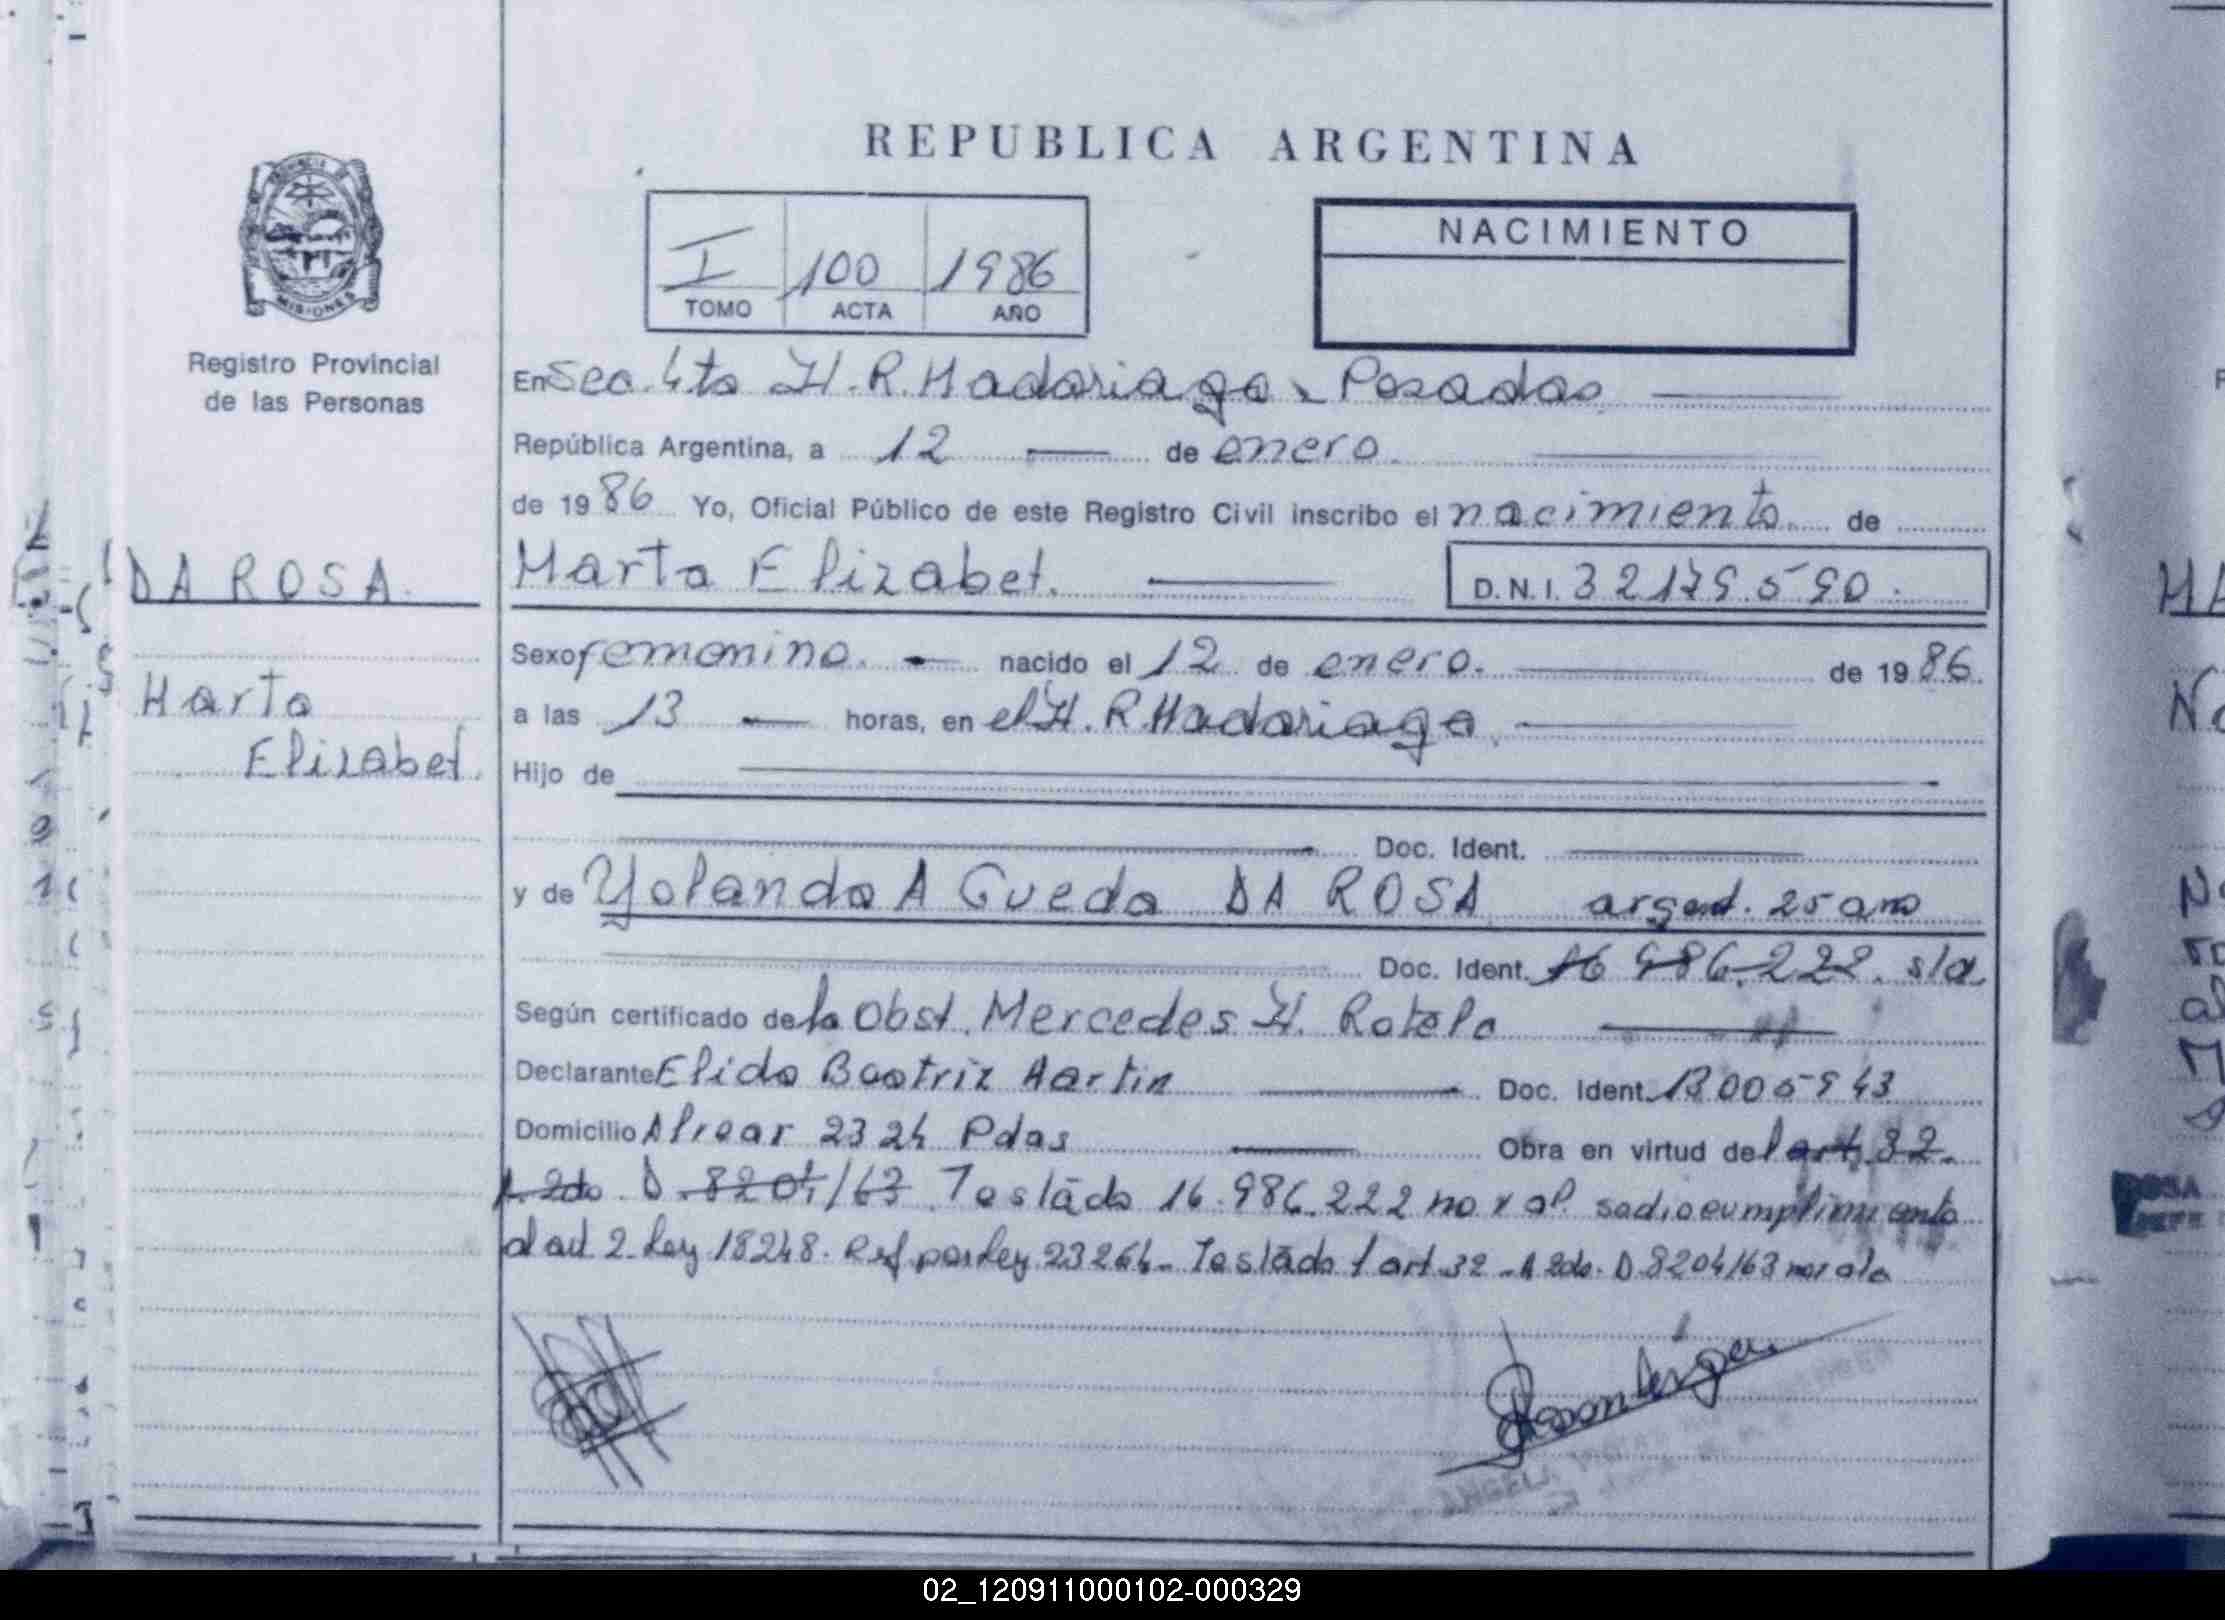 REPUBLICA ARGENTINA
I 100 1986
TOMO ACTA AÑO
NACIMIENTO
PROVINCIA DE
MISIONES
Registro Provincial
de las Personas
En Sec. 4ta H. R. Madariaga - Posadas
República Argentina, a 12 de enero.
de 1986 Yo, Oficial Público de este Registro Civil inscribo el nacimiento de
DA ROSA.
Marta Elizabet.
D.N.I. 32179.590.
Sexo femenino. nacido el 12 de enero. de 1986.
Marta
Elizabet.
a las 13 horas, en el H. R. Madariaga
Hijo de
Doc. Ident.
y de Yolanda AGueda DA ROSA argent. 25 ano
Doc. Ident. 16 986.222. s/d.
Según certificado de la Obst. Mercedes H. Rotela
Declarante Elida Beatriz Martin Doc. Ident. 13.005943
Domicilio Alvear 2324 Pdas Obra en virtud del art. 32.
A. 2do. D. 8204/63. Testádo 16.986.222 no v al. s/d
al art 2. Ley 18248. Ref. por Ley 23264. Testádo l art. 32 - A 2do. D 8204/63 no v ale
ANGELA
02_120911000102-000329